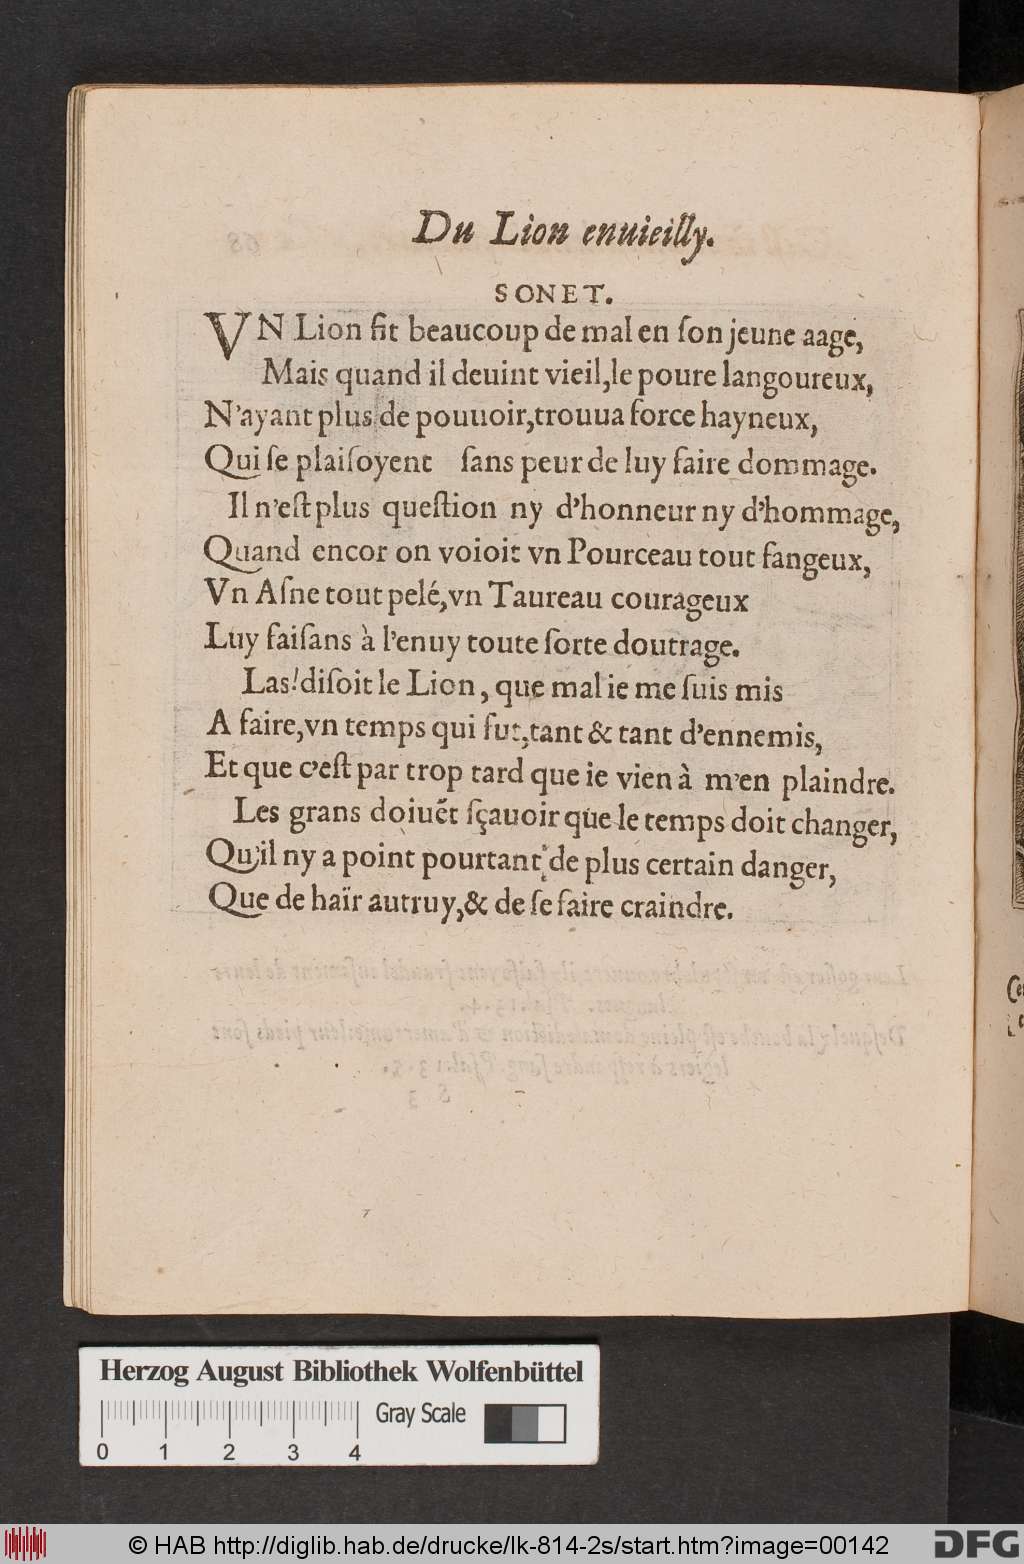 Du Lion enuieilly.
SONET.
VN Lion fit beaucoup de mal en ſon jeune aage,
Mais quand il deuint vieil,le poure langoureux,
N'ayant plus de pouuoir,trouua force hayneux,
Qui ſe plaiſoyent ſans peur de luy faire dommage.
Il n'eſt plus queſtion ny d'honneur ny d'hommage,
Quand encor on voioit vn Pourceau tout fangeux,
Vn Aſne tout pelé,vn Taureau courageux
Luy faiſans à l'enuy toute ſorte doutrage.
Las!diſoit le Lion, que mal ie me ſuis mis
A faire,vn temps qui fut,tant & tant d'ennemis,
Et que c'eſt par trop tard que ie vien à m'en plaindre.
Les grans doiuẽt ſçauoir que le temps doit changer,
Qu'il ny a point pourtant de plus certain danger,
Que de haïr autruy,& de ſe faire craindre.
Herzog August Bibliothek Wolfenbüttel
Gray Scale
0 1 2 3 4
© HAB http://diglib.hab.de/drucke/lk-814-2s/start.htm?image=00142
DFG